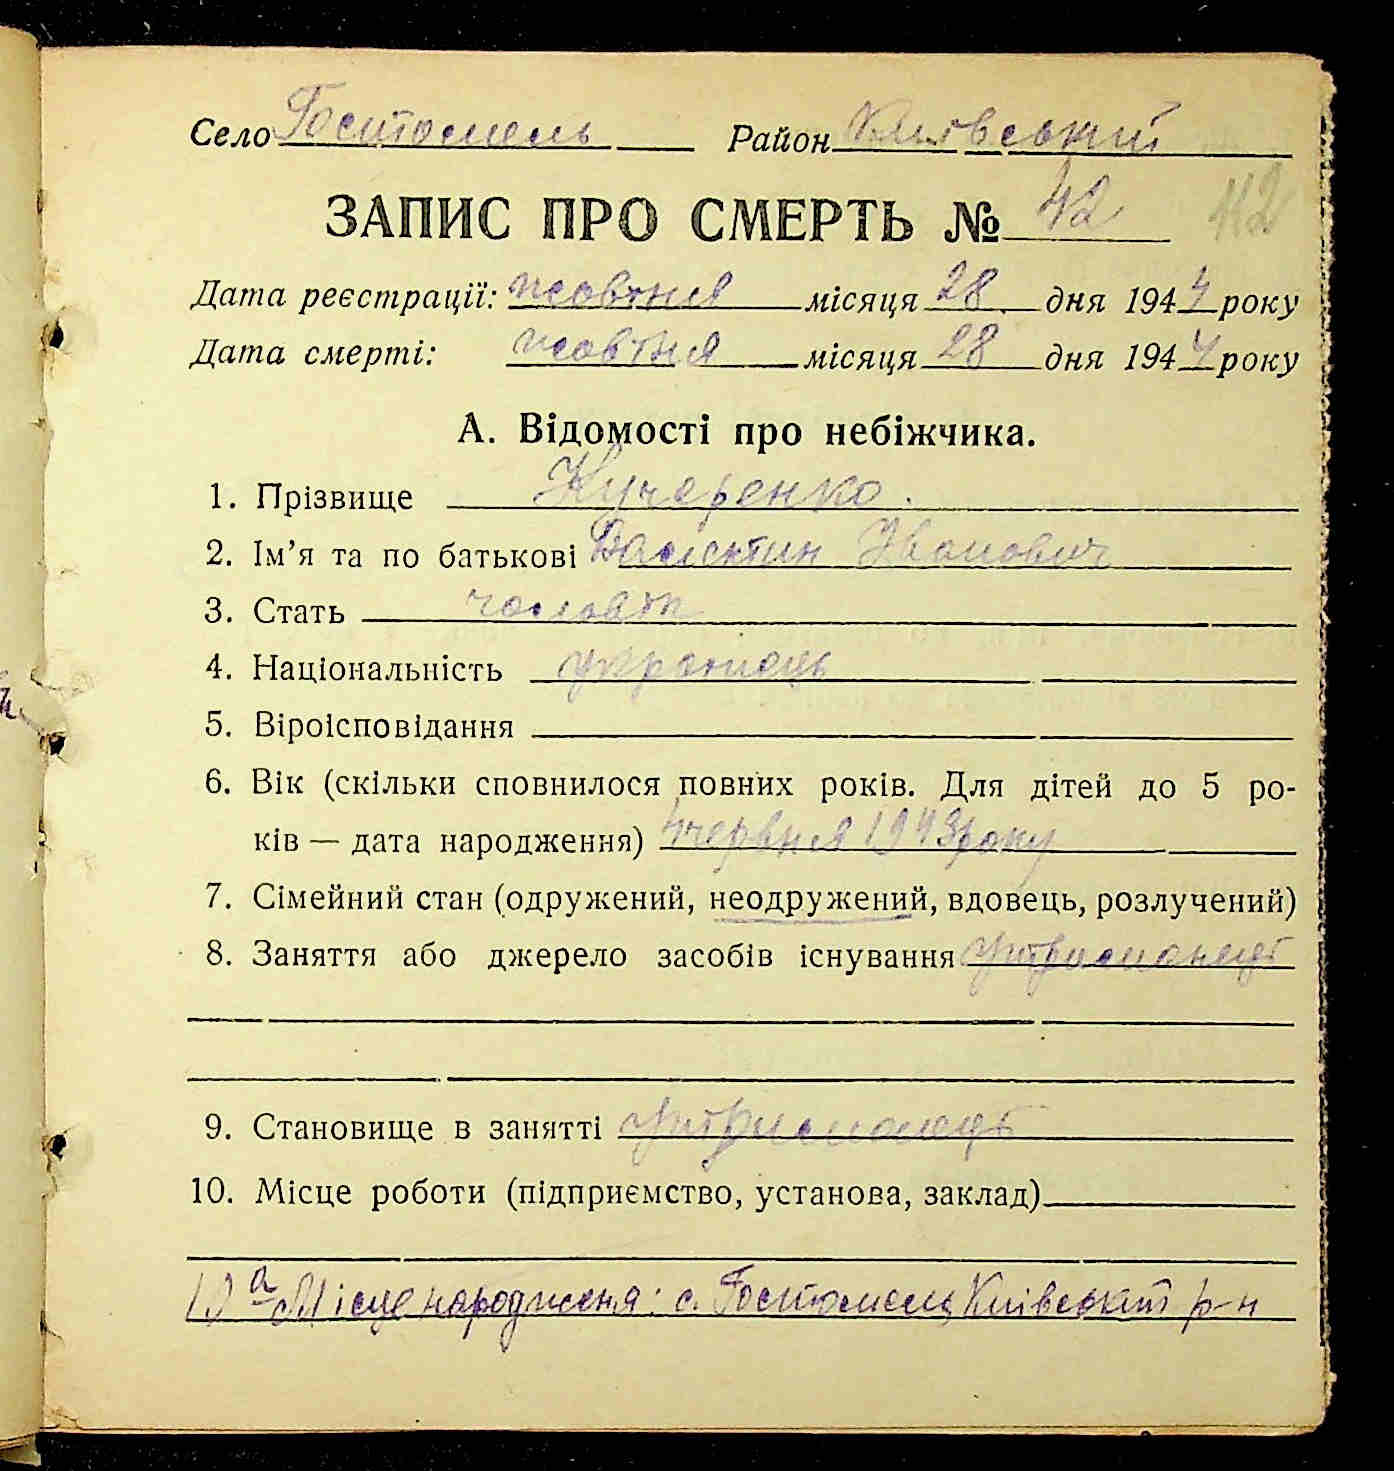 Село Гостомель Район Київський
ЗАПИС ПРО СМЕРТЬ № 42 42
Дата реєстрації: жовтня місяця 28 дня 1944 року
Дата смерті: жовтня місяця 28 дня 1944 року
А. Відомості про небіжчика.
1. Прізвище Кучеренко.
2. Ім'я та по батькові Валентин Іванович
3. Стать чоловік
4. Національність українець
5. Віроісповідання
6. Вік (скільки сповнилося повних років. Для дітей до 5 ро-
ків — дата народження) червня 1943 року
7. Сімейний стан (одружений, неодружений, вдовець, розлучений)
8. Заняття або джерело засобів існування утриманець
9. Становище в занятті утриманець
10. Місце роботи (підприємство, установа, заклад)
10 а Місце народження: с. Гостомель Київський р-н